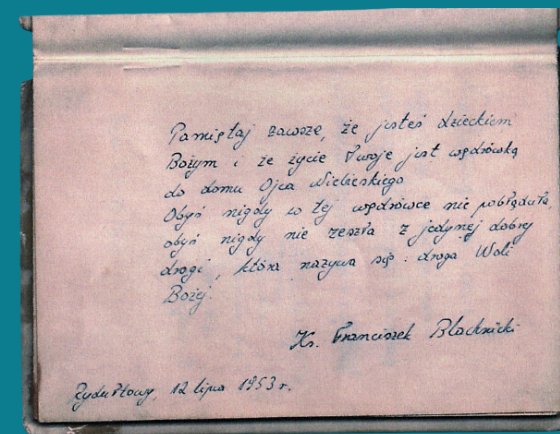 Pamiętaj zawsze, że jesteś dzieckiem
Bożym i że życie Twoje jest wędrówką
do domu Ojca Niebieskiego
Obyś nigdy w tej wędrówce nie pobłądziła,
obyś nigdy nie zeszła z jedynej dobrej
drogi, która nazywa się: droga Woli
Bożej.
Ks. Franciszek Blachnicki
Rydułtowy, 12 lipca 1953 r.